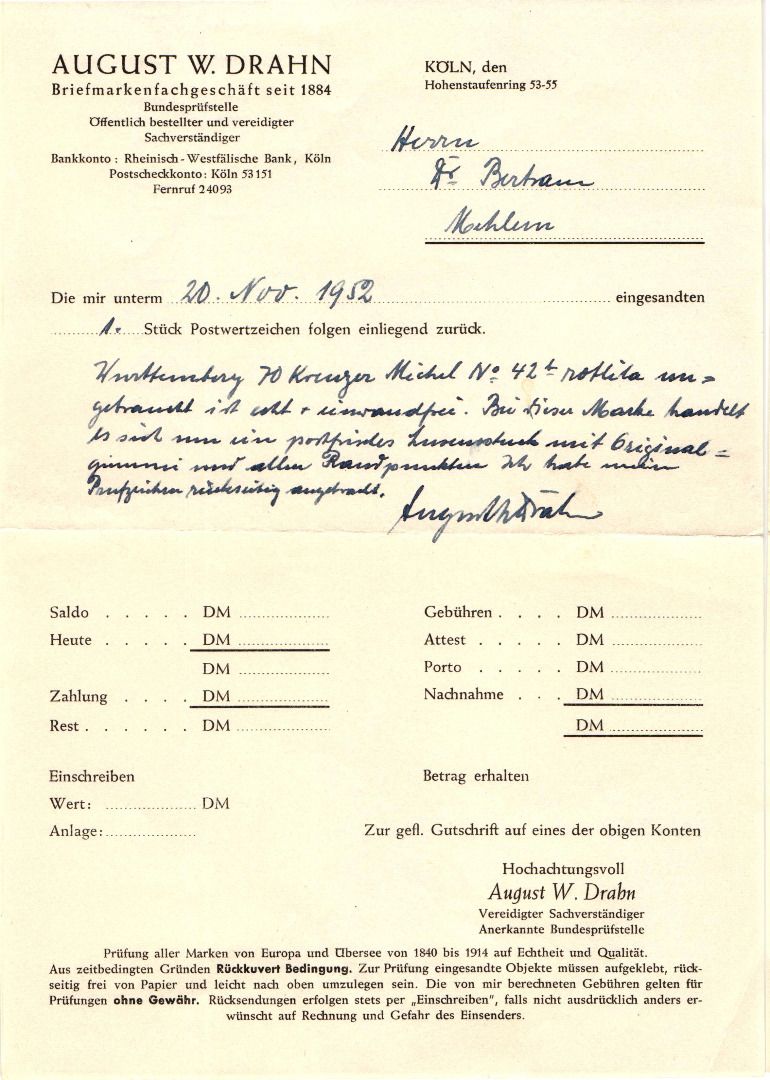 AUGUST W. DRAHN
Briefmarkenfachgeschäft seit 1884
Bundesprüfstelle
Öffentlich bestellter und vereidigter
Sachverständiger
Bankkonto: Rheinisch-Westfälische Bank, Köln
Postscheckkonto: Köln 53151
Fernruf 24093
KÖLN, den
Hohenstaufenring 53-55
Herrn
Dr. Bertram
Mehlem
Die mir unterm 20. Nov. 1952 eingesandten
1. Stück Postwertzeichen folgen einliegend zurück.
Württemberg 70 Kreuzer Michel No 42 rotlila un=
gebraucht ist echt + einwandfrei. Bei dieser Marke handelt
es sich um ein postfrisches Luxusstück mit Original=
gummi und allen Randpunkten Ich habe mein
Prüfzeichen rückseitig angebracht.
August W. Drahn
Saldo . . . . . DM
Heute . . . . . DM
DM
Zahlung . . . . DM
Rest . . . . . . DM
Gebühren . . . . DM
Attest . . . . . DM
Porto . . . . . DM
Nachnahme . . . DM
DM
Einschreiben
Wert: DM
Anlage:
Betrag erhalten
Zur gefl. Gutschrift auf eines der obigen Konten
Hochachtungsvoll
August W. Drahn
Vereidigter Sachverständiger
Anerkannte Bundesprüfstelle
Prüfung aller Marken von Europa und Übersee von 1840 bis 1914 auf Echtheit und Qualität.
Aus zeitbedingten Gründen Rückkuvert Bedingung. Zur Prüfung eingesandte Objekte müssen aufgeklebt, rück-
seitig frei von Papier und leicht nach oben umzulegen sein. Die von mir berechneten Gebühren gelten für
Prüfungen ohne Gewähr. Rücksendungen erfolgen stets per „Einschreiben", falls nicht ausdrücklich anders er-
wünscht auf Rechnung und Gefahr des Einsenders.